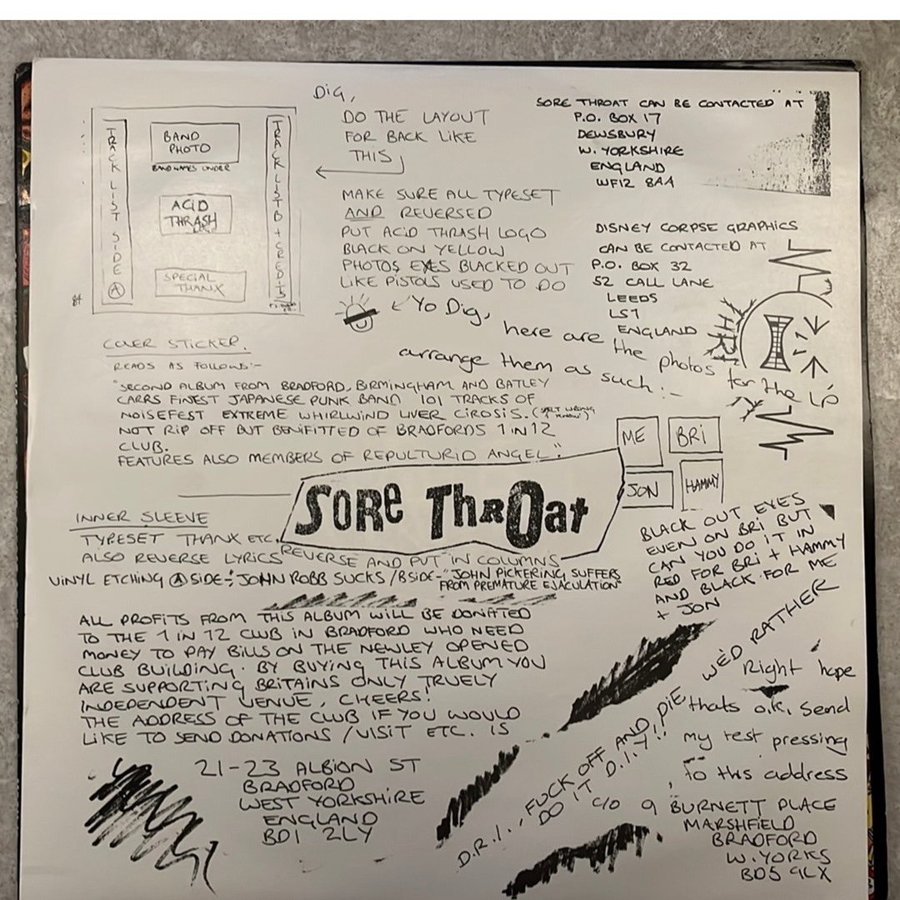 Dig,
DO THE LAYOUT
FOR BACK LIKE
THIS
MAKE SURE ALL TYPESET
AND REVERSED
PUT ACID THRASH LOGO
BLACK ON YELLOW
PHOTOS EYES BLACKED OUT
LIKE PISTOLS USED TO DO
TRACK LIST SIDE A
BAND
PHOTO
BAND NAMES UNDER
ACID
THRASH
SPECIAL
THANX
TRACK LIST B + CREDITS
SORE THROAT CAN BE CONTACTED AT
P.O. BOX 17
DEWSBURY
W. YORKSHIRE
ENGLAND
WF12 8AA
DISNEY CORPSE GRAPHICS
CAN BE CONTACTED AT
P.O. BOX 32
52 CALL LANE
LEEDS
LS1
ENGLAND
Yo Dig,
here are the photos for the LP
arrange them as such:-
ME
BRi
JON
HAMMY
BLACK OUT EYES
EVEN ON BRi BUT
CAN YOU DO IT IN
RED FOR BRi + HAMMY
AND BLACK FOR ME
+ JON
COVER STICKER.
READS AS FOLLOWS:-
"SECOND ALBUM FROM BRADFORD, BIRMINGHAM AND BATLEY
CARRS FINEST JAPANESE PUNK BAND 101 TRACKS OF
NOISEFEST EXTREME WHIRLWIND LIVER CIROSIS.
NOT RIP OFF BUT BENIFITTED OF BRADFORDS 1 IN 12
CLUB.
FEATURES ALSO MEMBERS OF REPULTURID ANGEL."
SORE THROAT
INNER SLEEVE
TYPESET THANX ETC.
ALSO REVERSE LYRICS REVERSE AND PUT IN COLUMNS
VINYL ETCHING A SIDE-"JOHN ROBB SUCKS / B SIDE-"JOHN PICKERING SUFFERS
FROM PREMATURE EJACULATION"
ALL PROFITS FROM THIS ALBUM WILL BE DONATED
TO THE 1 IN 12 CLUB IN BRADFORD WHO NEED
MONEY TO PAY BILLS ON THE NEWLEY OPENED
CLUB BUILDING. BY BUYING THIS ALBUM YOU
ARE SUPPORTING BRITAINS ONLY TRUELY
INDEPENDENT VENUE, CHEERS!
THE ADDRESS OF THE CLUB IF YOU WOULD
LIKE TO SEND DONATIONS / VISIT ETC. IS
21-23 ALBION ST
BRADFORD
WEST YORKSHIRE
ENGLAND
BD1 2LY
D.R.I., FUCK OFF AND DIE, WE'D RATHER
DO IT D.I.Y!!
Right hope
thats o.k, Send
my test pressing
to this address
c/o 9 BURNETT PLACE
MARSHFIELD
BRADFORD
W. YORKS
BD5 9LX